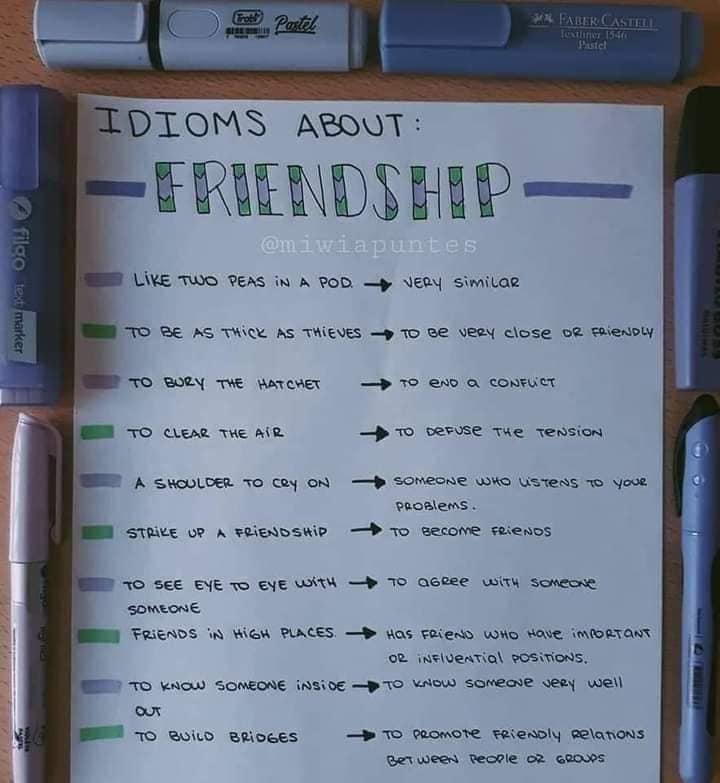 Trabi Pastel
FABER-CASTELL
Textliner 1546
Pastel
filgo text marker
IDIOMS ABOUT:
FRIENDSHIP
@miwiapuntes
LIKE TWO PEAS IN A POD. → VERY SIMILAR
TO BE AS THICK AS THIEVES → TO BE VERY CLOSE OR FRIENDLY
TO BURY THE HATCHET → TO END A CONFLICT
TO CLEAR THE AIR → TO DEFUSE THE TENSION
A SHOULDER TO CRY ON → SOMEONE WHO LISTENS TO YOUR
PROBLEMS.
STRIKE UP A FRIENDSHIP → TO BECOME FRIENDS
TO SEE EYE TO EYE WITH → TO AGREE WITH SOMEONE
SOMEONE
FRIENDS IN HIGH PLACES. → HAS FRIEND WHO HAVE IMPORTANT
OR INFLUENTIAL POSITIONS.
TO KNOW SOMEONE INSIDE → TO KNOW SOMEONE VERY WELL
OUT
TO BUILD BRIDGES → TO PROMOTE FRIENDLY RELATIONS
BETWEEN PEOPLE OR GROUPS